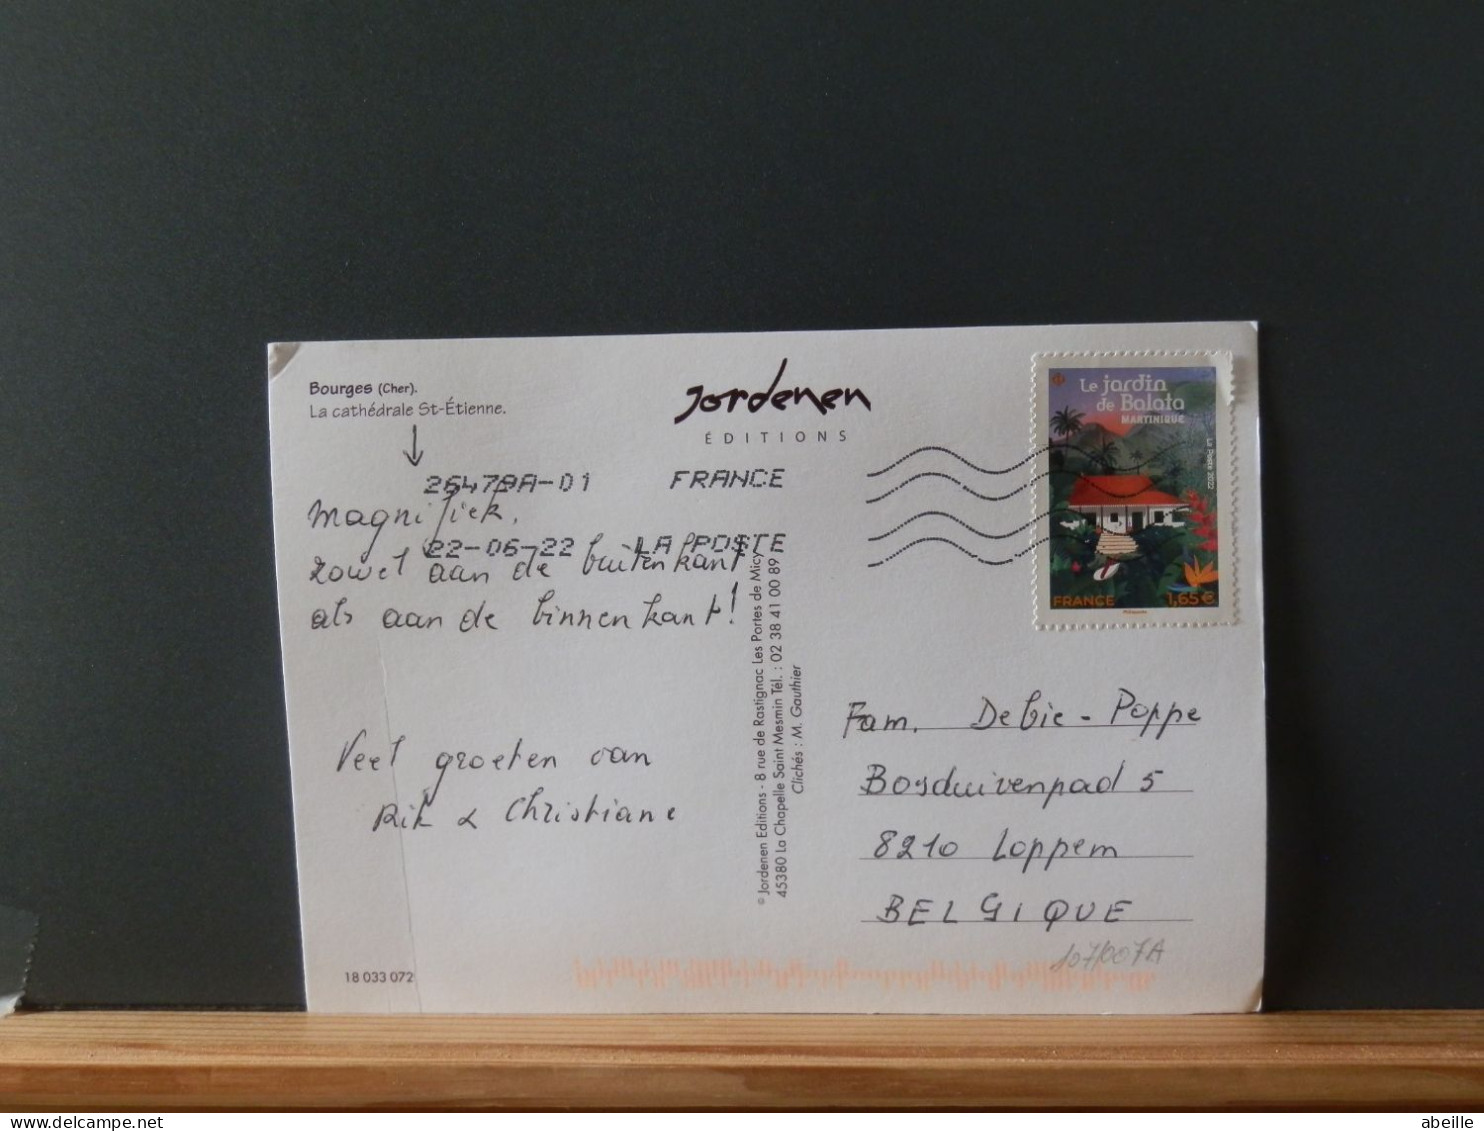 Bourges (Cher).
La cathédrale St-Étienne.
Jordenen
ÉDITIONS
26479A-01 FRANCE
22-06-22 LA POSTE
Magnifiek,
zowel aan de buitenkant
als aan de binnenkant!
Veel groeten van
Rik & Christiane
18 033 072
© Jordenen Editions - 8 rue de Rastignac Les Portes de Micy
45380 La Chapelle Saint Mesmin Tél. : 02 38 41 00 89
Clichés : M. Gauthier
Le jardin
de Balata
MARTINIQUE
La Poste 2022
FRANCE 1,65€
Fam. Debie - Poppe
Bosduivenpad 5
8210 Loppem
BELGIQUE
107/007A
abeille